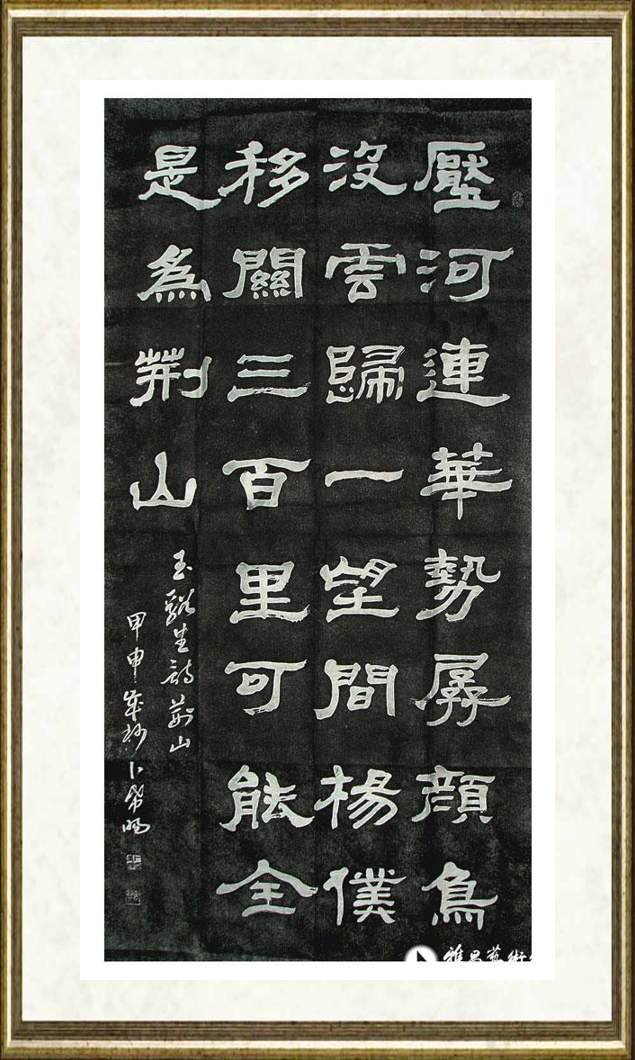 壓河連華勢孱顏鳥
没雲歸一望間楊僕
移關三百里可能全
是為荆山
玉谿生詩荆山
甲申歲杪卜希暘
雅昌藝術